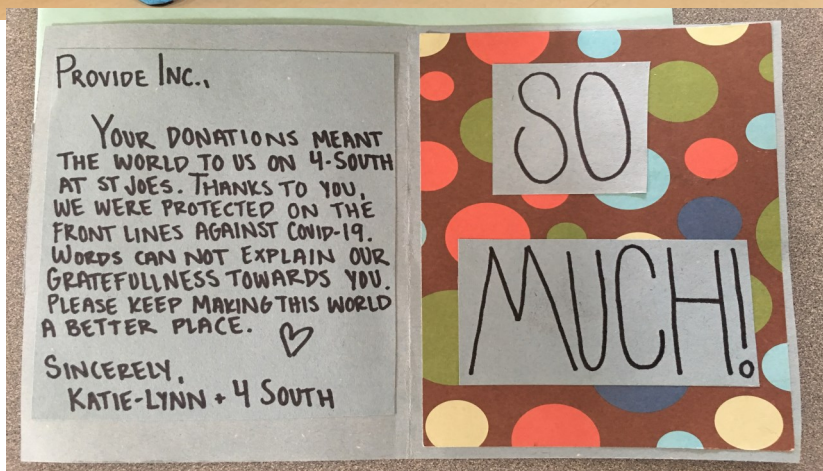 PROVIDE INC.,
YOUR DONATIONS MEANT
THE WORLD TO US ON 4-SOUTH
AT ST JOES. THANKS TO YOU,
WE WERE PROTECTED ON THE
FRONT LINES AGAINST COVID-19.
WORDS CAN NOT EXPLAIN OUR
GRATEFULLNESS TOWARDS YOU.
PLEASE KEEP MAKING THIS WORLD
A BETTER PLACE.
SINCERELY,
KATIE-LYNN + 4 SOUTH
SO
MUCH!